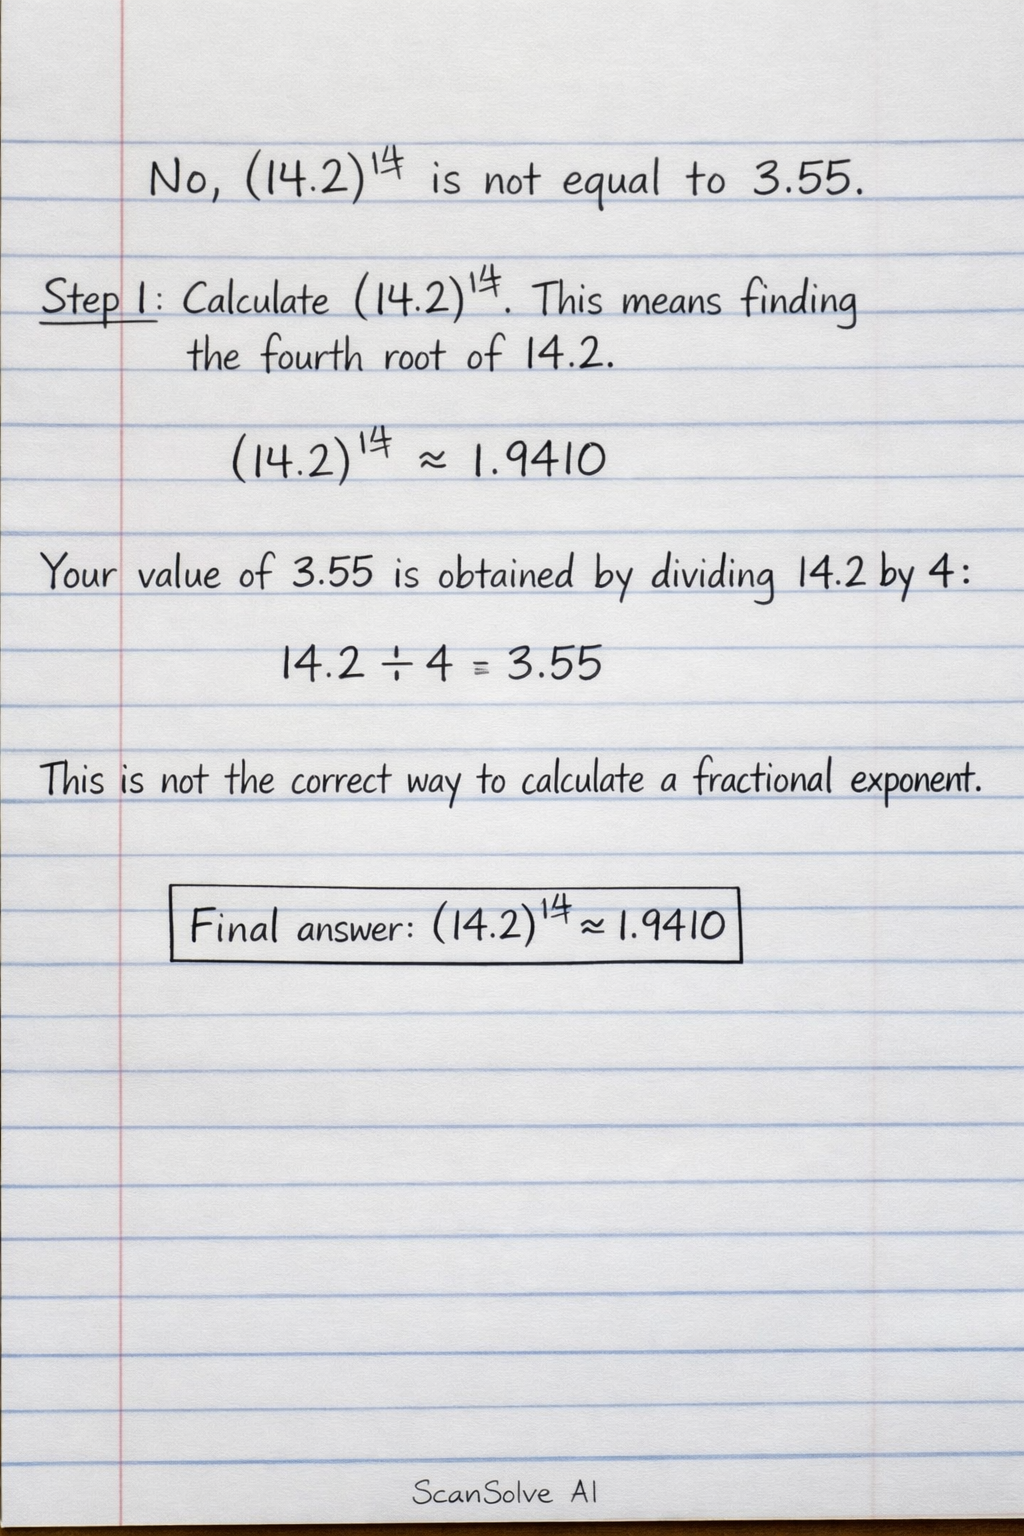 No, (14.2)^14 is not equal to 3.55.
Step 1: Calculate (14.2)^14. This means finding
the fourth root of 14.2.
(14.2)^14 ≈ 1.9410
Your value of 3.55 is obtained by dividing 14.2 by 4:
14.2 ÷ 4 = 3.55
This is not the correct way to calculate a fractional exponent.
Final answer: (14.2)^14 ≈ 1.9410
ScanSolve AI